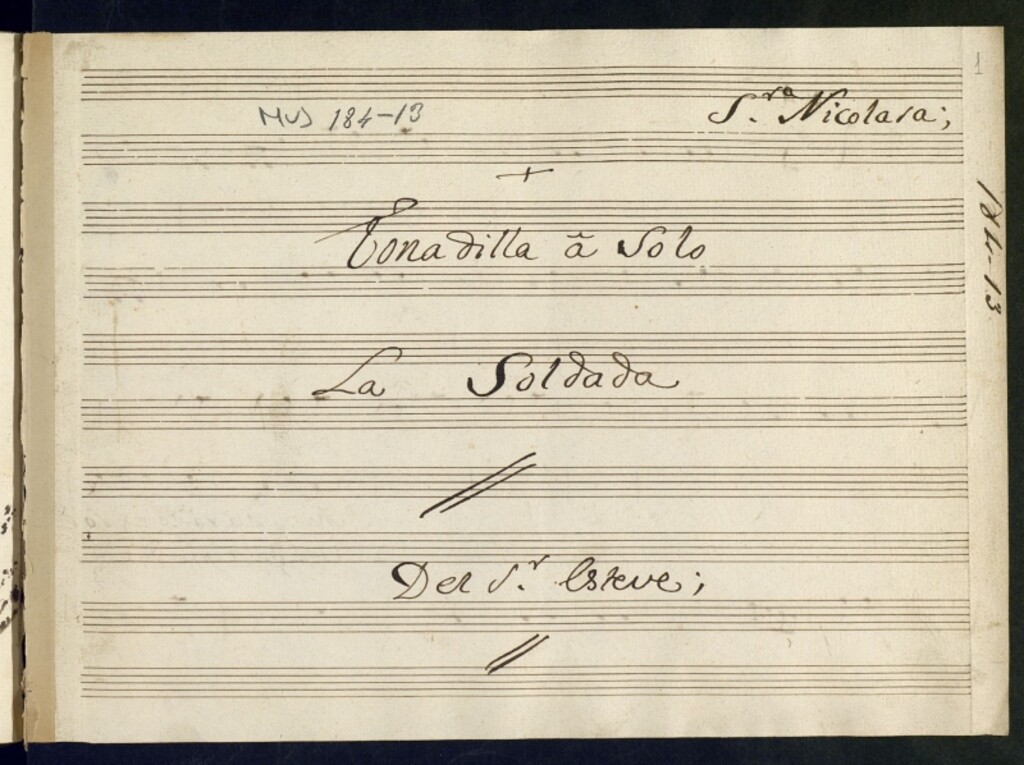 1
S.ra Nicolasa;
MUS 184-13
+
Tonadilla â Solo
184-13
La Soldada
Del S.r Esteve;